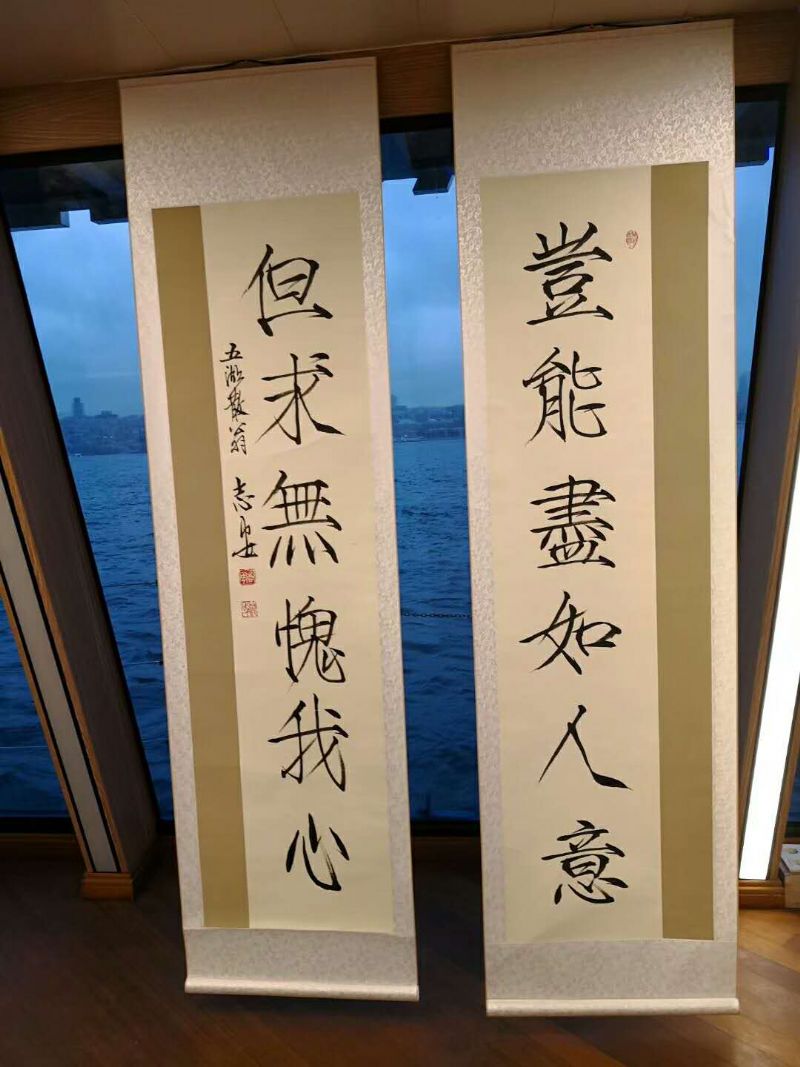 豈能盡如人意
但求無愧我心
五湖散翁 志